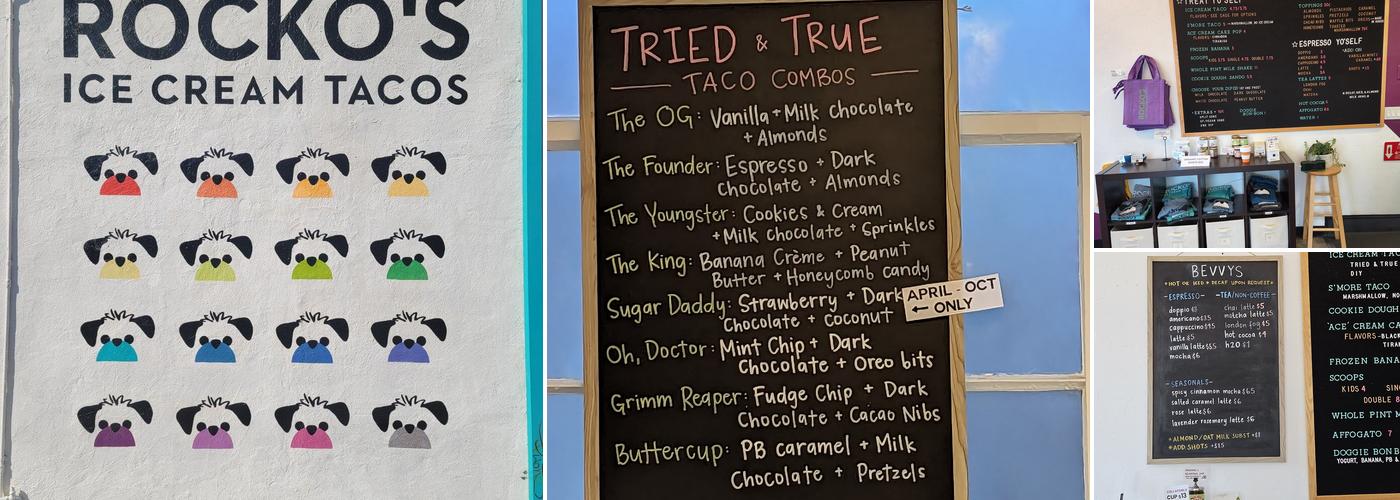 ROCKO'S
ICE CREAM TACOS
TRIED & TRUE
TACO COMBOS
The OG: Vanilla + Milk Chocolate
+ Almonds
The Founder: Espresso + Dark
Chocolate + Almonds
The Youngster: Cookies & Cream
+ Milk Chocolate + Sprinkles
The King: Banana Crème + Peanut
Butter + Honeycomb candy
Sugar Daddy: Strawberry + Dark
Chocolate + coconut
APRIL - OCT
← ONLY
Oh, Doctor: Mint Chip + Dark
Chocolate + Oreo bits
Grimm Reaper: Fudge Chip + Dark
Chocolate + Cacao Nibs
Buttercup: PB caramel + Milk
Chocolate + Pretzels
TREAT YO'SELF
ICE CREAM TACO
FLAVORS - SEE
S'MORE TACO
ICE CREAM CAKE POP
FROZEN BANANA
SCOOPS
WHOLE PINT MILK SHAKE
COOKIE DOUGH SANDO
CHOOSE YOUR DIP
MILK CHOCOLATE DARK CHOCOLATE
WHITE CHOCOLATE PEANUT BUTTER
TOPPINGS
ALMONDS PISTACHIOS CARAMEL
SPRINKLES PRETZELS COCONUT
☆ ESPRESSO YO'SELF
HOT COCOA
AFFOGATO
WATER
BEVVYS
*HOT OR ICED * DECAF UPON REQUEST*
-ESPRESSO-
doppio
americano
cappuccino
latte $5
vanilla latte
mocha $6
-TEA/NON-COFFEE-
chai latte $5
matcha latte $5
london fog $5
hot cocoa $4
h2o $1
-SEASONALS-
spicy cinnamon mocha $6.5
salted caramel latte $6
rose latte $6
lavender rosemary latte $6
*ALMOND/OAT MILK SUBST +$1
*ADD SHOTS +$1.5
ICE CREAM
TRIED & TRUE
DIY
S'MORE TACO
MARSHMALLOW,
COOKIE DOUGH
'ACE' CREAM
FLAVORS
FROZEN BANA
SCOOPS
KIDS 4
DOUBLE 8
WHOLE PINT M
AFFOGATO 7
DOGGIE BON B
YOGURT, BANANA, PB &
CUP $13